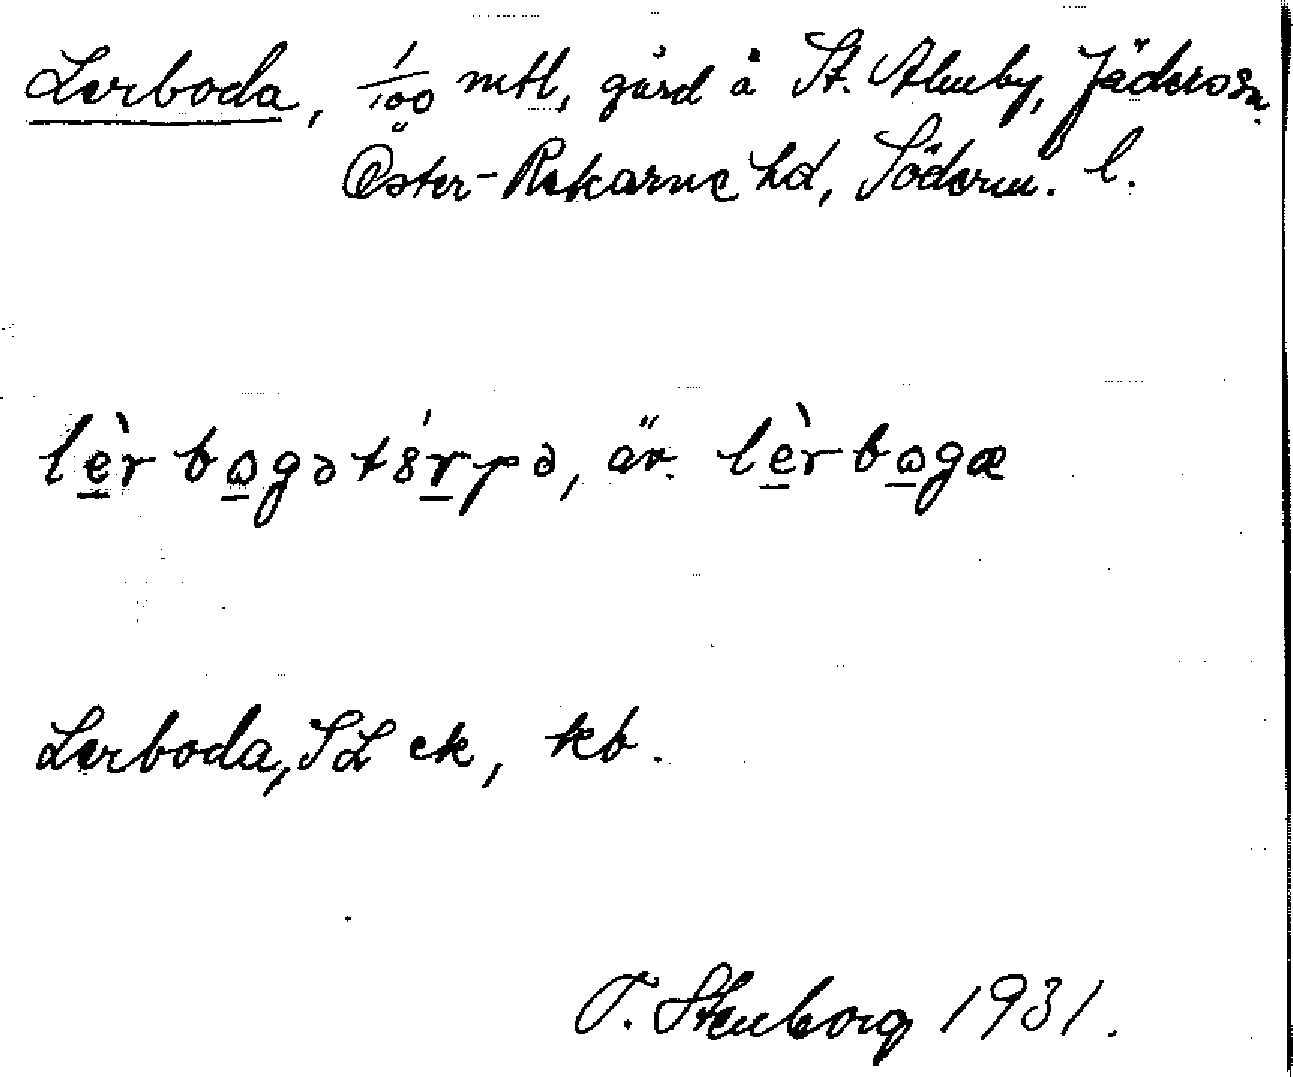 Lerboda, 1/100 mtl, gård å St. Åleby, Jäders sn.
Öster-Rekarne hd, Söderm. l.
lèr bɷgət8́rpə, äv. lèrbɷgæ
Lerboda, SL ek, kb.
T. Stenborg 1931.